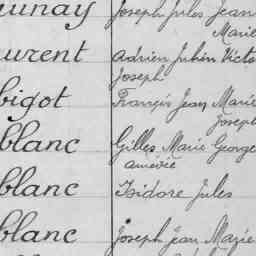 unay Joseph Jules Jean
Marie
urent Adrien Julien Victo
Joseph
bigot François Jean Marie
Joseph
blanc Gilles Marie George
amévie
blanc Isidore Jules
blanc Joseph Jean Marie